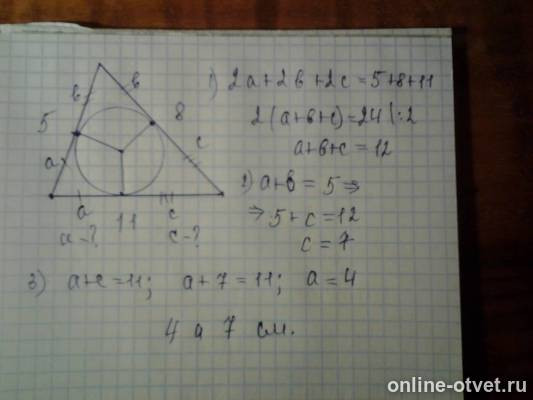 1) 2a+2в+2c=5+8+11
2(a+в+c)=24 |:2
a+в+c=12
в в
5 8
a c
a 11 c
a-? c-?
2) a+в = 5 ⇒
⇒ 5+c=12
c=7
3) a+c=11; a+7=11; a=4
4 и 7 см.
online-otvet.ru